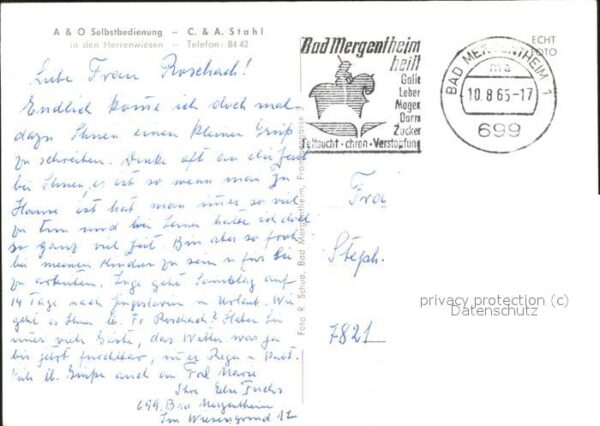 A & O Selbstbedienung – C. & A. Stahl
in den Herrenwiesen – Telefon: 8442
Liebe Frau Roschach!
Endlich komme ich doch mal
dazu Ihnen einen kleinen Gruß
zu schreiben. Denke oft an die Zeit
bei Ihnen, es ist so wenn man zu
Hause ist hat man immer so viel
zu tun und bei Ihnen hatte ich doch
so ganz viel Zeit. Bin aber so froh
bei meinen Kindern zu sein u für Sie
zu arbeiten. Inge geht Samstag auf
14 Tage nach Jugoslavien in Urlaub. Wie
geht es Ihnen lb. Fr Roschach? Haben Sie
immer viele Gäste, das Wetter war ja
bis jetzt furchtbar, immer Regen u kalt.
lb. Grüße auch an Frl Marie
Ihre Else Fuchs
699 Bad Mergentheim
Im Wiesengrund 12
Foto R. Schuo, Bad Mergentheim,
Bad Mergentheim
heilt
Galle
Leber
Magen
Darm
Zucker
Fettsucht · chron · Verstopfung
BAD MERGENTHEIM 1
ms
10.8.65-17
699
ECHT
FOTO
Fra
Steph.
7821
privacy protection (c)
Datenschutz